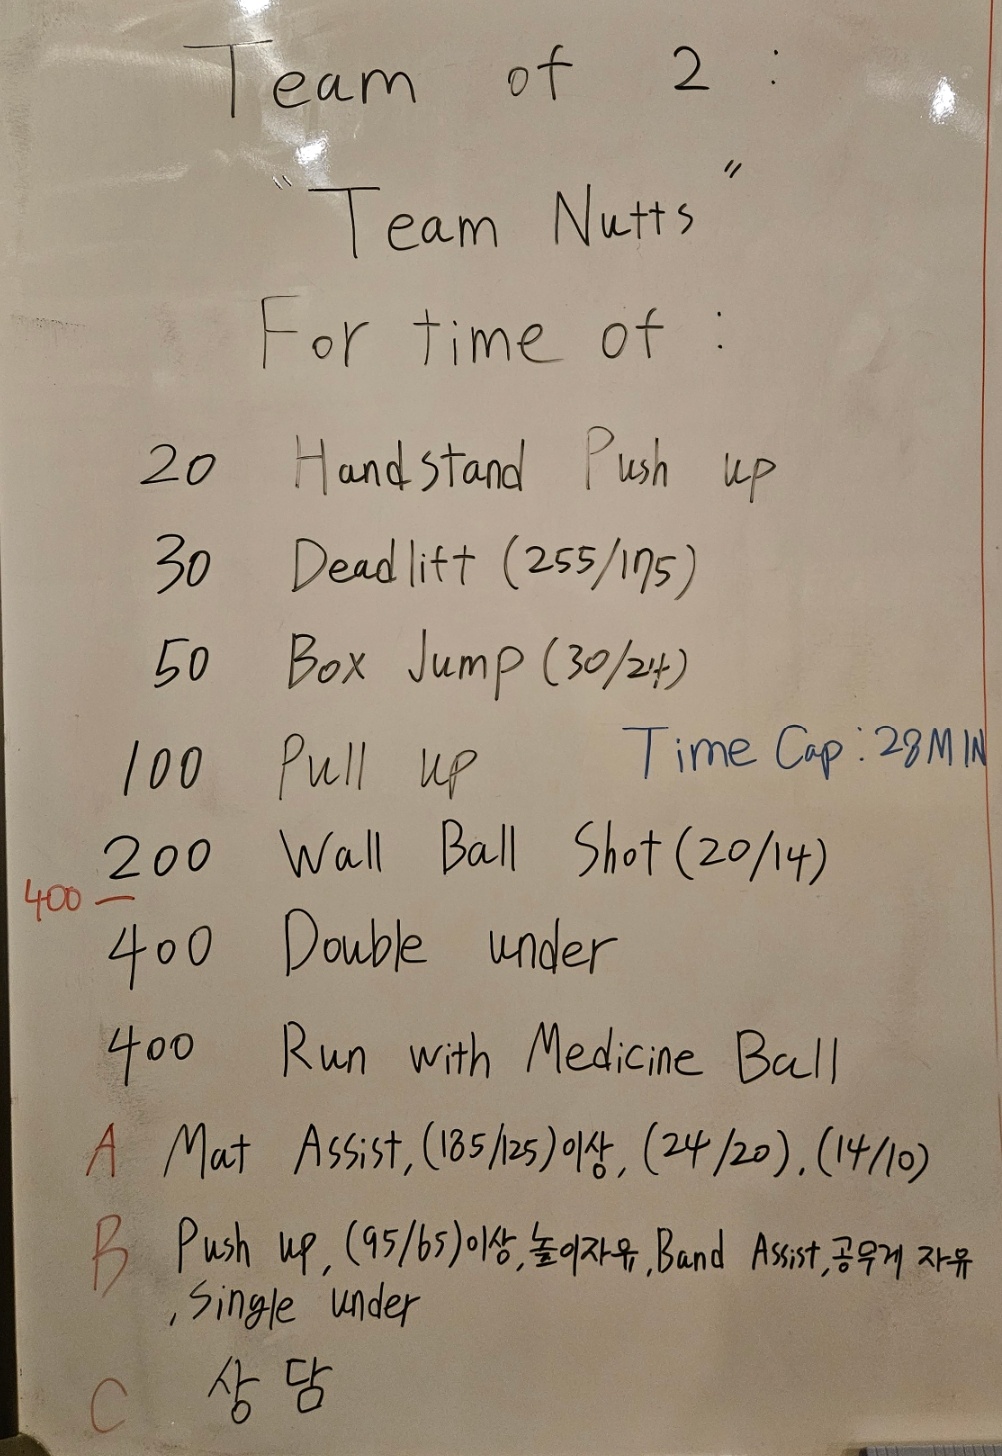 Team of 2 :
"Team Nutts"
For time of :
20 Handstand Push up
30 Deadlift (255/175)
50 Box Jump (30/24)
100 Pull up
Time Cap : 28MIN
200 Wall Ball Shot (20/14)
400 —
400 Double under
400 Run with Medicine Ball
A Mat Assist, (185/125)이상, (24/20), (14/10)
B Push up, (95/65)이상, 높이자유, Band Assist, 공무게 자유
, Single under
C 상담